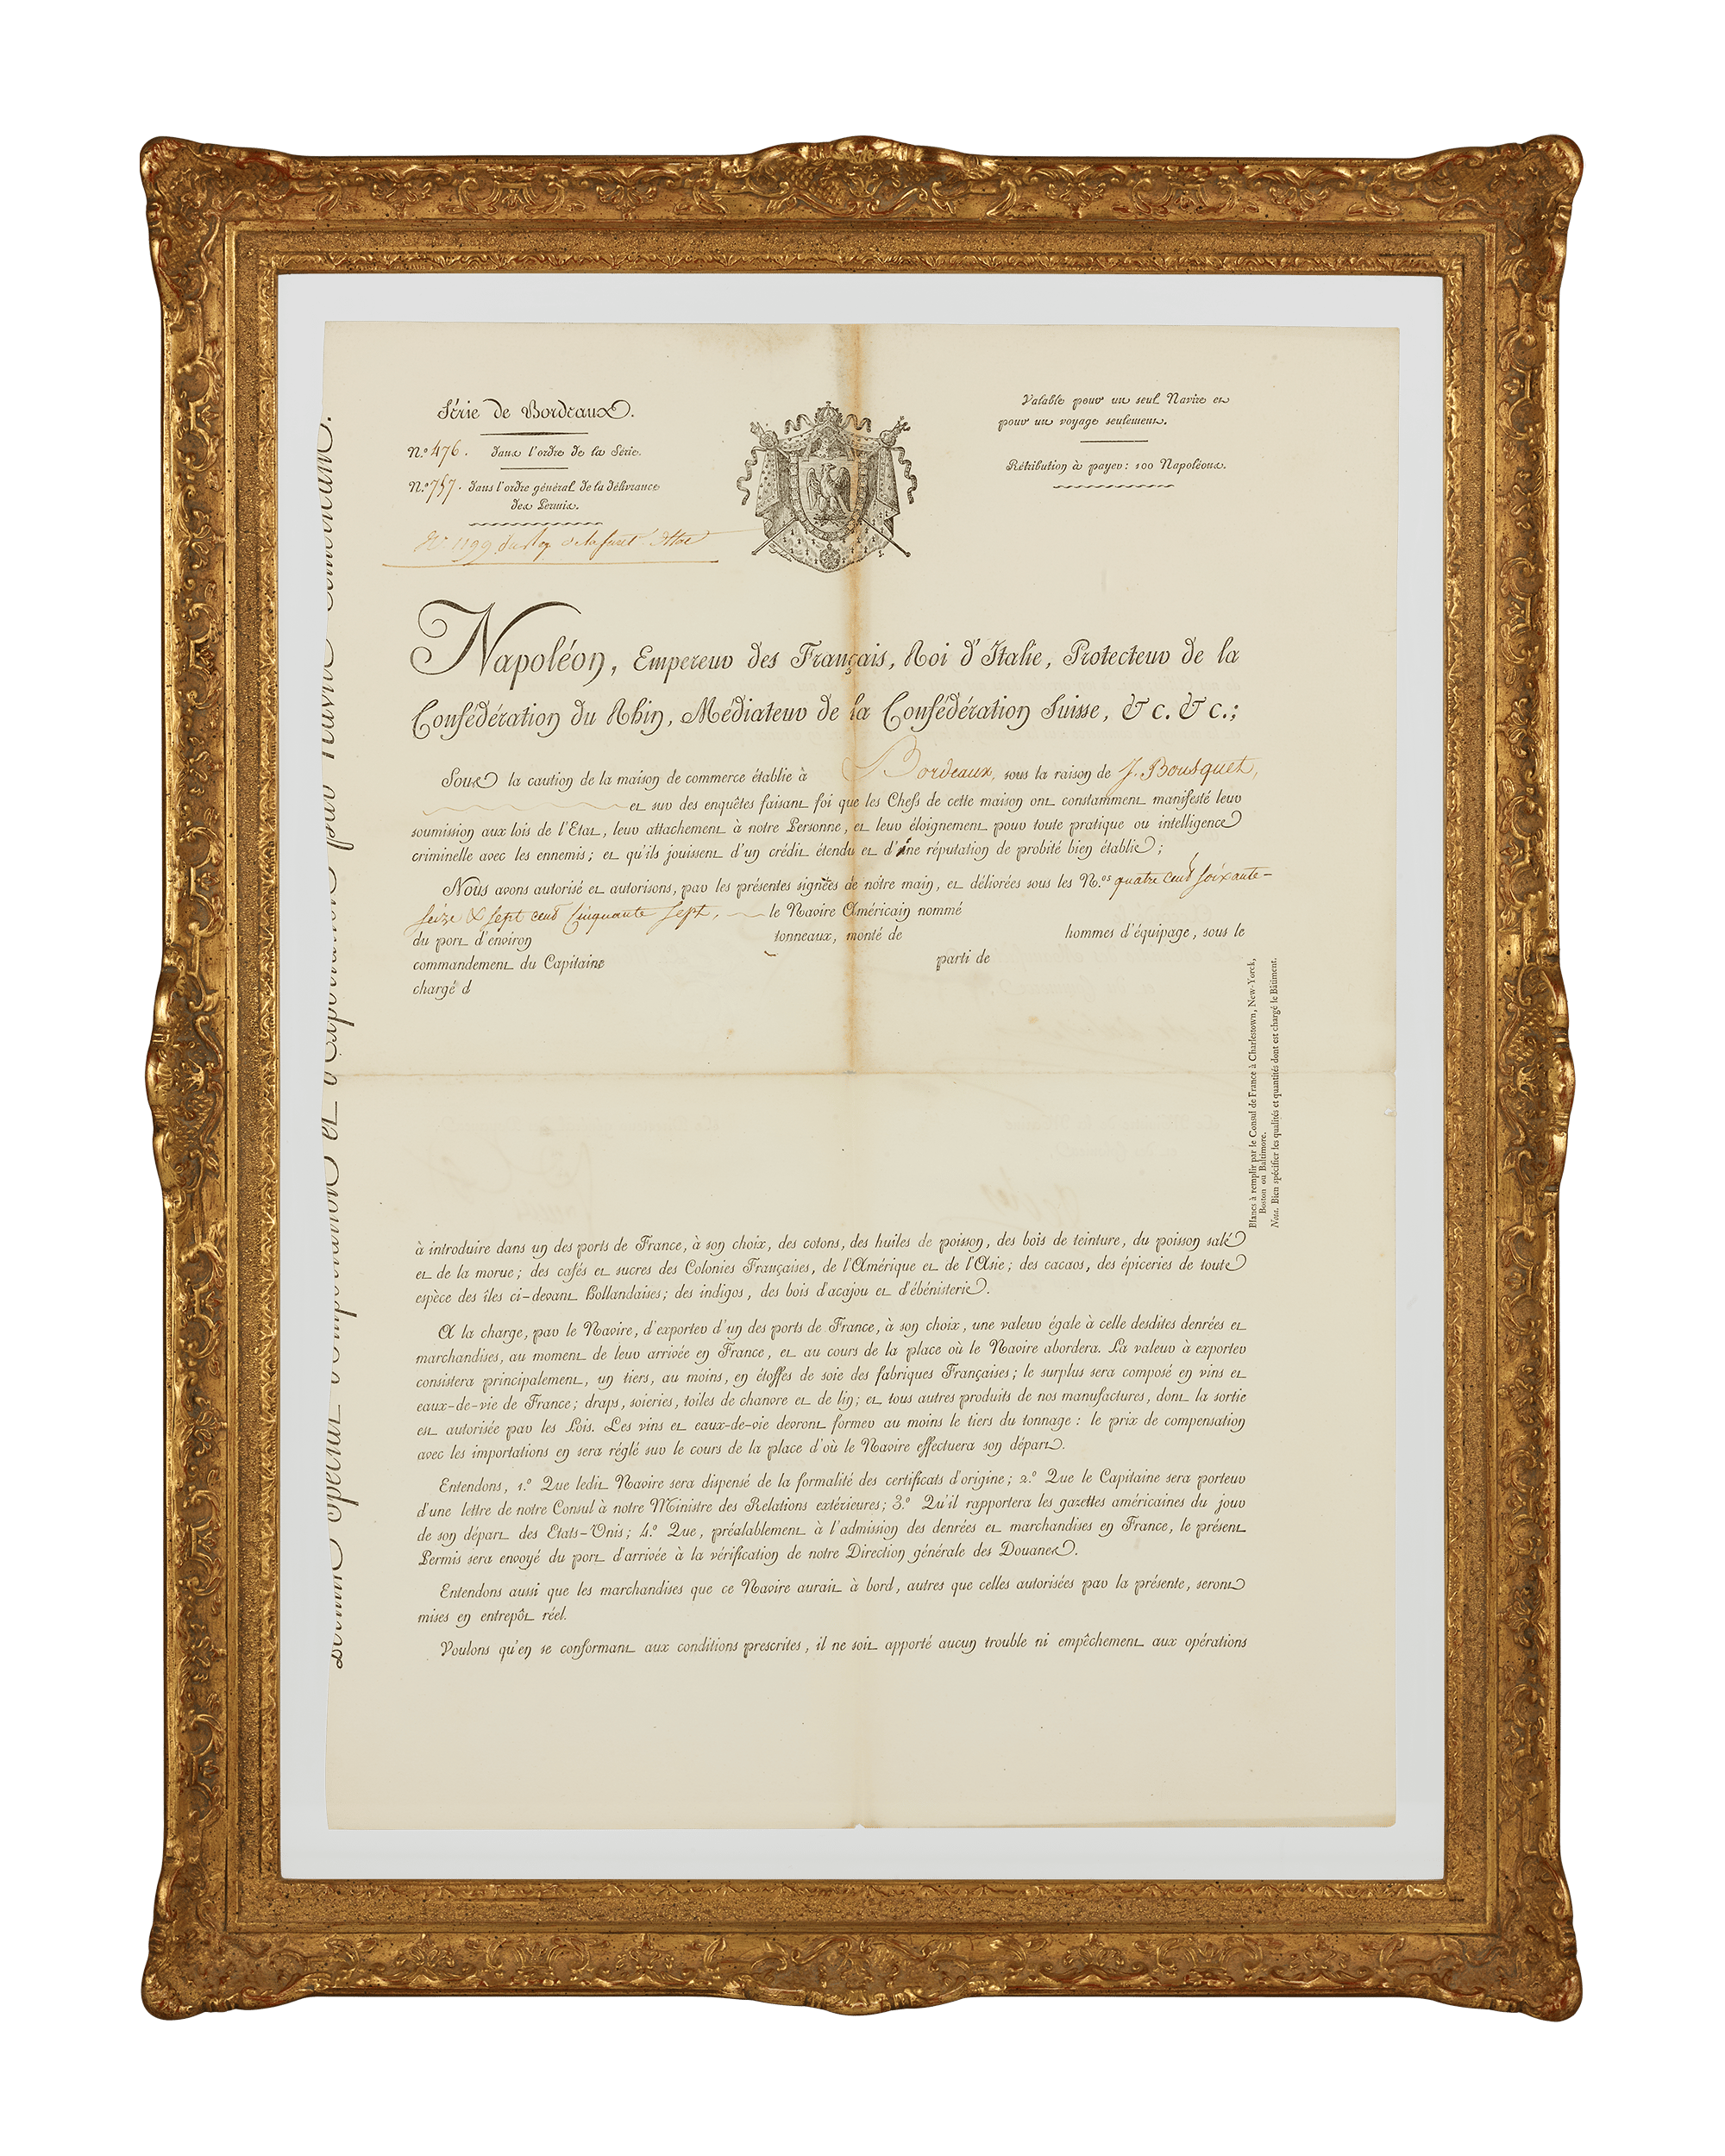 Série de Bordeaux.
N.º 476. dans l'ordre de la Série.
N.º 757. dans l'ordre général de la délivrance
des Permis.
N.º 1199
Valable pour un seul Navire et
pour un voyage seulement.
Rétribution à payer : 100 Napoléons.
Napoléon, Empereur des Français, Roi d'Italie, Protecteur de la
Confédération du Rhin, Médiateur de la Confédération Suisse, & c. & c.;
Sous la caution de la maison de commerce établie à Bordeaux, sous la raison de J. Bousquet,
et sur des enquêtes faisant foi que les Chefs de cette maison ont constamment manifesté leur
soumission aux lois de l'Etat, leur attachement à notre Personne, et leur éloignement pour toute pratique ou intelligence
criminelle avec les ennemis; et qu'ils jouissent d'un crédit étendu et d'une réputation de probité bien établie;
Nous avons autorisé et autorisons, par les présentes signées de nôtre main, et délivrées sous les N.os quatre cent soixante-
seize & sept cent cinquante sept, le Navire Américain nommé
du port d'environ tonneaux, monté de hommes d'équipage, sous le
commandement du Capitaine parti de
chargé d
à introduire dans un des ports de France, à son choix, des cotons, des huiles de poisson, des bois de teinture, du poisson salé
et de la morue; des cafés et sucres des Colonies Françaises, de l'Amérique et de l'Asie; des cacaos, des épiceries de toute
espèce des îles ci-devant Hollandaises; des indigos, des bois d'acajou et d'ébénisterie.
A la charge, par le Navire, d'exporter d'un des ports de France, à son choix, une valeur égale à celle desdites denrées et
marchandises, au moment de leur arrivée en France, et au cours de la place où le Navire abordera. La valeur à exporter
consistera principalement, un tiers, au moins, en étoffes de soie des fabriques Françaises; le surplus sera composé en vins et
eaux-de-vie de France; draps, soieries, toiles de chanvre et de lin; et tous autres produits de nos manufactures, dont la sortie
est autorisée par les Lois. Les vins et eaux-de-vie devront former au moins le tiers du tonnage : le prix de compensation
avec les importations en sera réglé sur le cours de la place d'où le Navire effectuera son départ.
Entendons, 1.º Que ledit Navire sera dispensé de la formalité des certificats d'origine; 2.º Que le Capitaine sera porteur
d'une lettre de notre Consul à notre Ministre des Relations extérieures; 3.º Qu'il rapportera les gazettes américaines du jour
de son départ des Etats-Unis; 4.º Que, préalablement à l'admission des denrées et marchandises en France, le présent
Permis sera envoyé du port d'arrivée à la vérification de notre Direction générale des Douanes.
Entendons aussi que les marchandises que ce Navire aurait à bord, autres que celles autorisées par la présente, seront
mises en entrepôt réel.
Voulons qu'en se conformant aux conditions prescrites, il ne soit apporté aucun trouble ni empêchement aux opérations
Blancs à remplir par le Consul de France à Charlestown, New-Yorck,
Boston ou Baltimore.
Nota. Bien spécifier les qualités et quantités dont est chargé le Bâtiment.